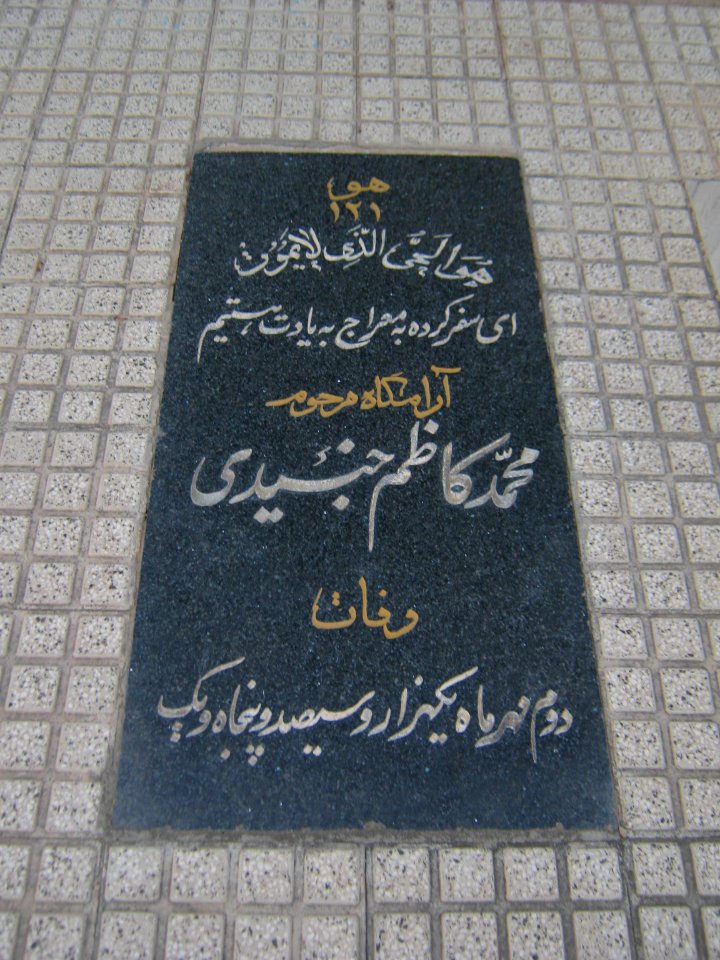 هو
۱۲۱
هُوَ الحَیُّ الَّذی لایَمُوت
ای سفر کرده به معراج به یادت هستیم
آرامگاه مرحوم
محمّد کاظم جنیدی
وفات
دوم مهر ماه یکهزار و سیصد و پنجاه و یک